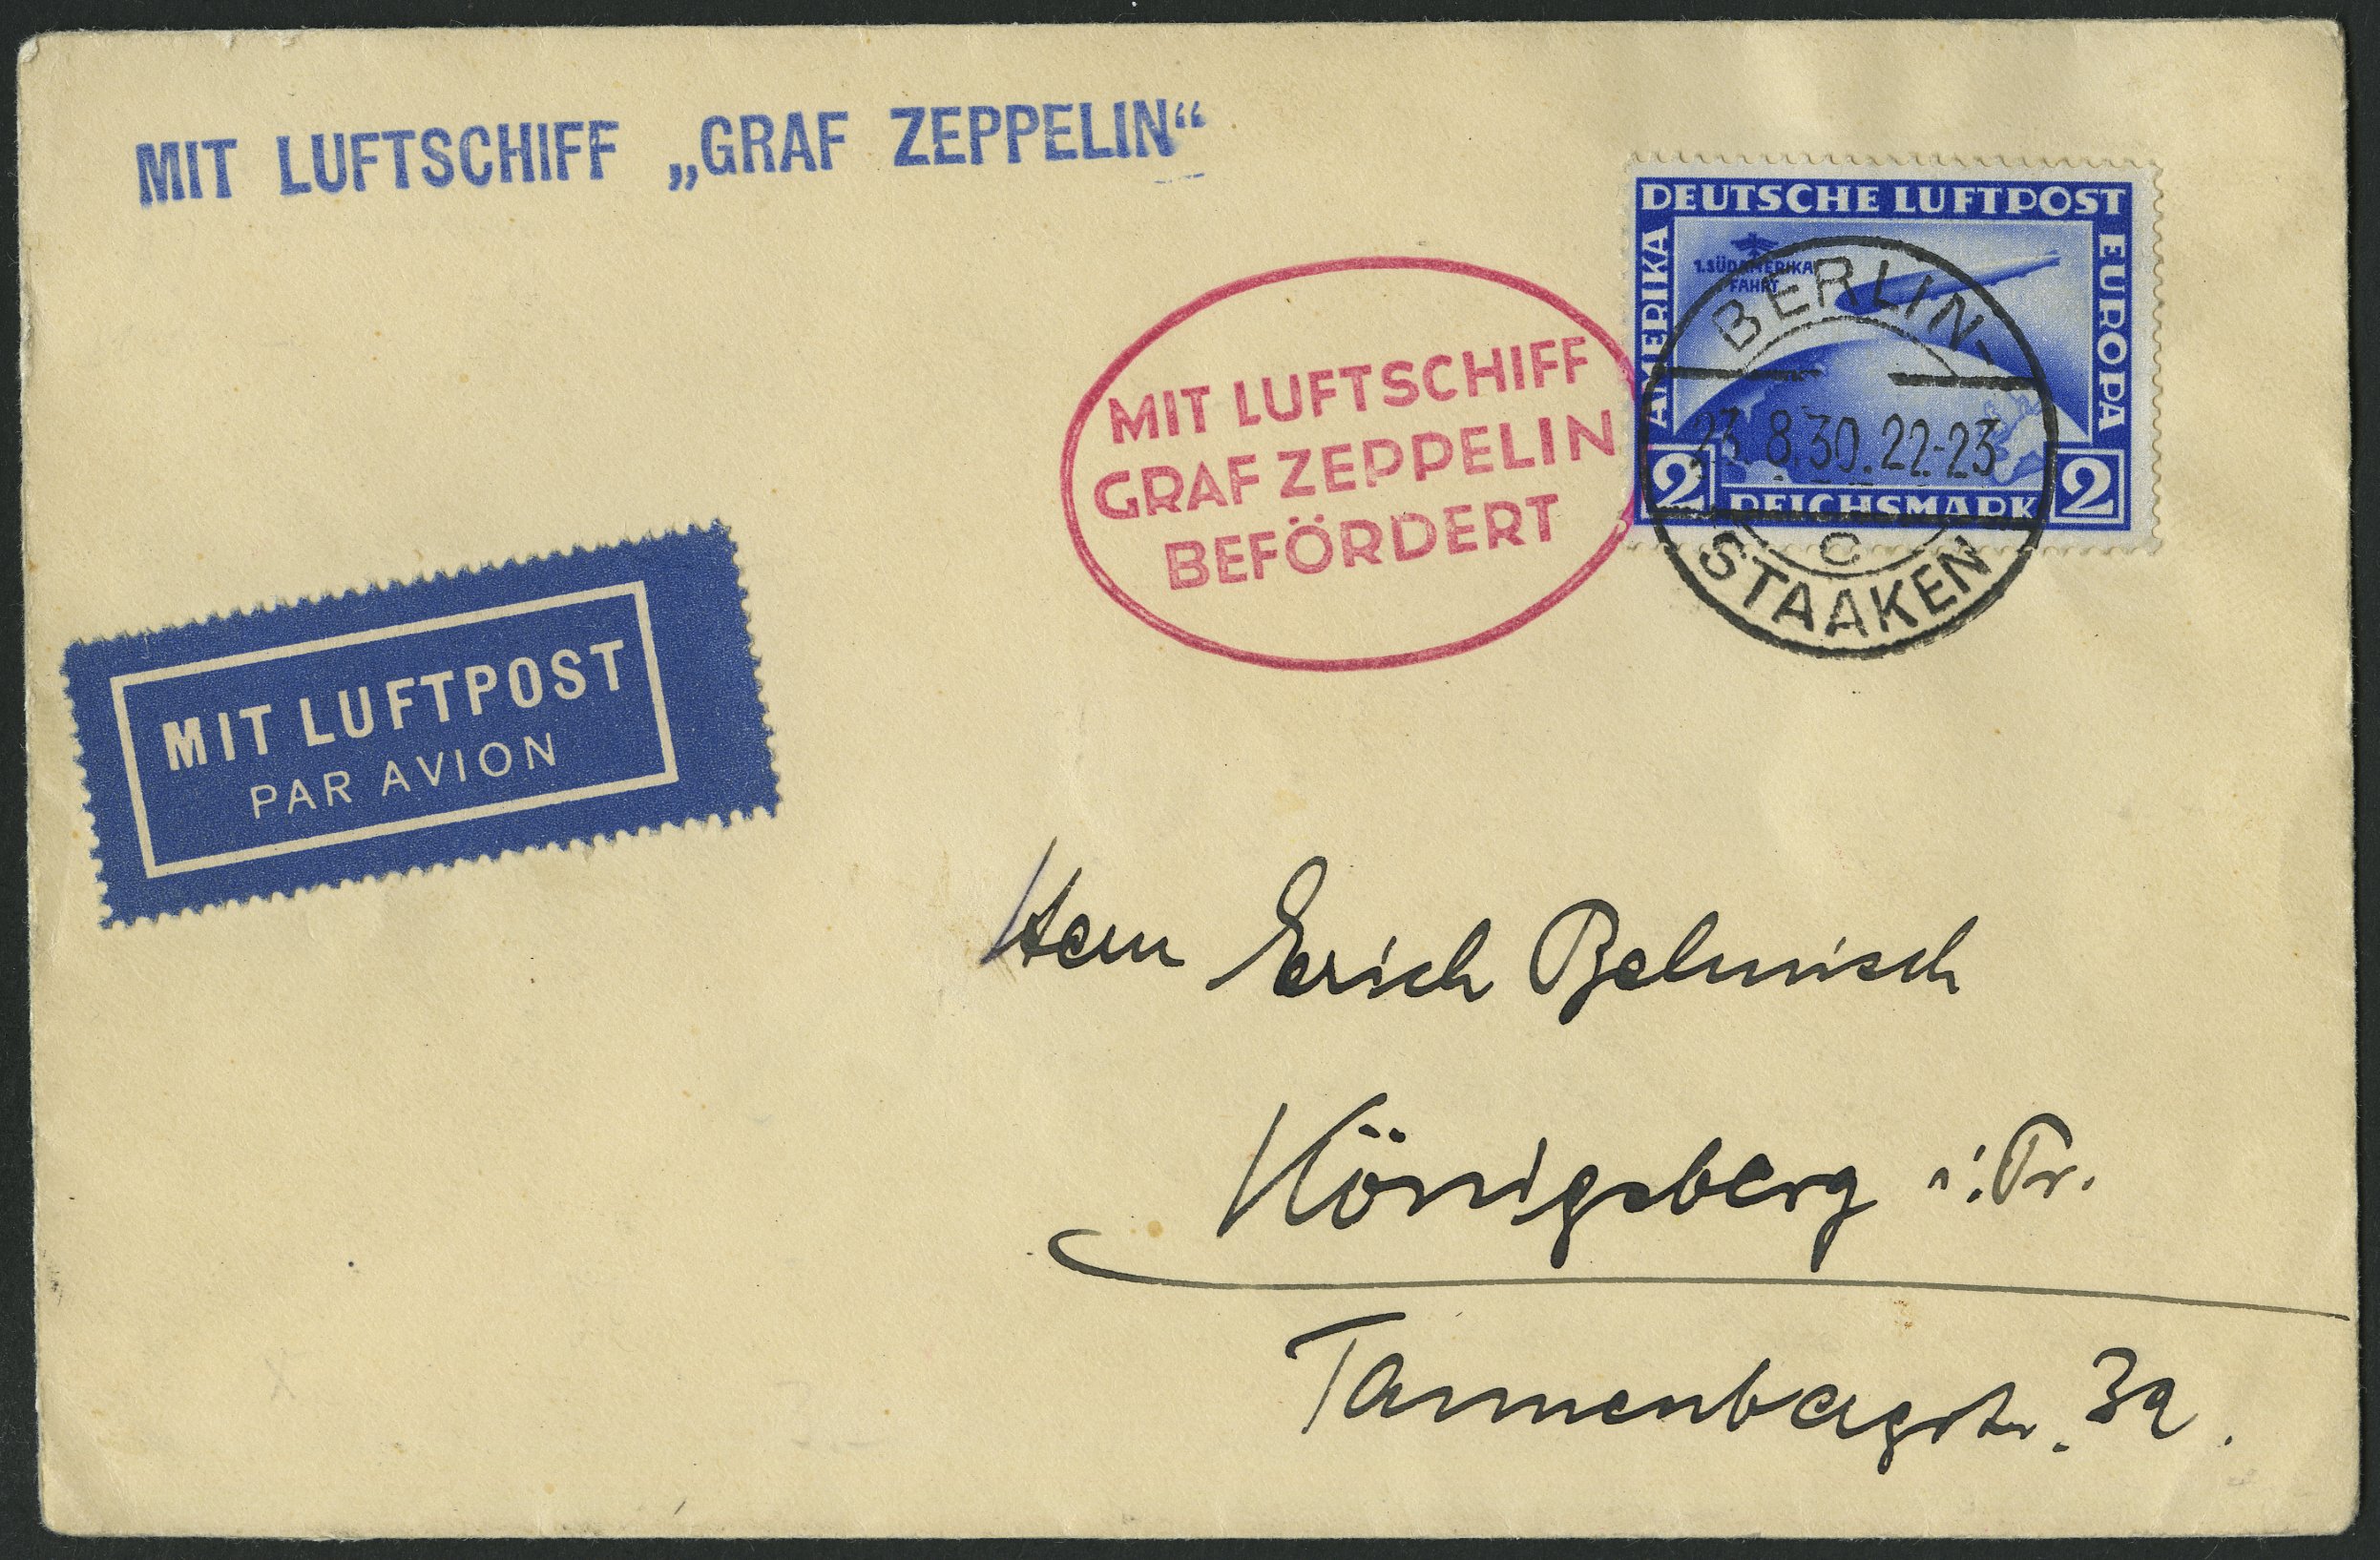 MIT LUFTSCHIFF „GRAF ZEPPELIN“
DEUTSCHE LUFTPOST
AMERIKA
EUROPA
1.SÜDAMERIKA
FAHRT
2 REICHSMARK 2
BERLIN-
23.8.30.22-23
C
STAAKEN
MIT LUFTSCHIFF
GRAF ZEPPELIN
BEFÖRDERT
MIT LUFTPOST
PAR AVION
Herrn Erich
Königsberg i. Pr.
Tannenbergstr. 32.